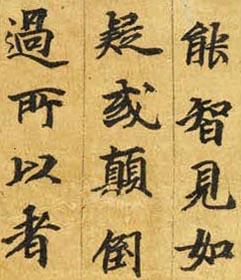 能智見如
疑或顛倒
過所以者